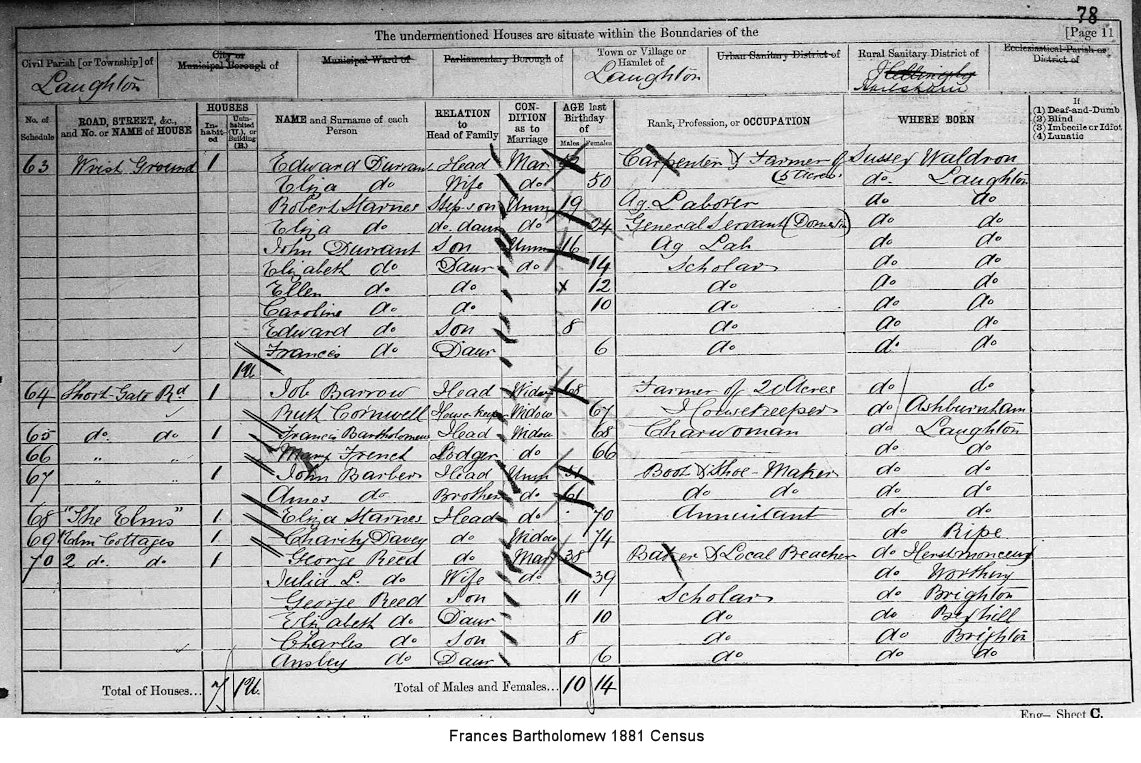 78
The undermentioned Houses are situate within the Boundaries of the [Page 11
Civil Parish [or Township] of Laughton
City or Municipal Borough of
Municipal Ward of
Parliamentary Borough of
Town or Village or Hamlet of Laughton
Urban Sanitary District of
Rural Sanitary District of Hailsham
Ecclesiastical Parish or District of
No. of Schedule
ROAD, STREET, &c., and No. or NAME of HOUSE
HOUSES
In-habit-ed
Unin-habited (U.), or Building (B.)
NAME and Surname of each Person
RELATION to Head of Family
CON-DITION as to Marriage
AGE last Birthday of
Males
Females
Rank, Profession, or OCCUPATION
WHERE BORN
If
(1) Deaf-and-Dumb
(2) Blind
(3) Imbecile or Idiot
(4) Lunatic
63 Ground 1 Edward Durrant Head Mar Carpenter & Farmer of 5 Acres Sussex Waldron
Eliza do Wife do 50 do Laughton
Robert Starnes Step-son Unm 19 Ag. Laborer do do
Eliza do do. daur do 24 General Servant (Domestic) do do
John Durrant Son Unm 16 Ag Lab do do
Elizabeth do Daur do 14 Scholar do do
Ellen do do x 12 do do do
Caroline do do 10 do do do
Edward do Son 8 do do do
Frances do Daur 6 do do do
1U
64 Short Gate Rd 1 Job Barrow Head Widr 68 Farmer of 20 Acres do do
Ruth Cornwell House-keeper Widow 67 Housekeeper do Ashburnham
65 do. do 1 Francis Bartholomew Head Widow 68 Charwoman do Laughton
66 " " Mary French Lodger do 66 do do
67 " " 1 John Barber Head Unm Boot & Shoe-Maker do do
Amos do Brother do 61 do do do do
68 "The Elms" 1 Eliza Starnes Head do 70 Annuitant do do
69 Elm Cottages 1 Charity Davey do Widow 74 do Ripe
70 2 do. do 1 George Reed do Mar 38 Baker & Local Preacher do Herstmonceux
Julia L. do Wife do 39 do Worthing
George Reed Son 11 Scholar do Brighton
Elizabeth do Daur 10 do do Bexhill
Charles do Son 8 do do Brighton
Ansley do Daur 6 do do do
Total of Houses... 7 1U. Total of Males and Females... 10 14
Eng— Sheet C.
Frances Bartholomew 1881 Census